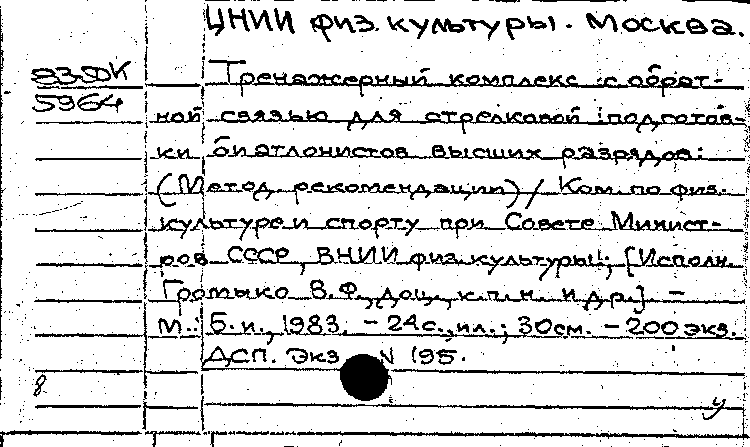 ЦНИИ физ. культуры. Москва.
83-5ДК
5964
Тренажерный комплекс с обрат-
ной связью для стрелковой подготов-
ки биатлонистов высших разрядов:
(Метод. рекомендации) / Ком. по физ.
культуре и спорту при Совете Минист-
ров СССР, ВНИИ физ. культуры; [Исполн.
Громыко В.Ф., доц., к.п.н. и др.] –
М.: Б.и., 1983. – 24с., ил.; 30см. – 200 экз.
ДСП. Экз. N 195.
8
у